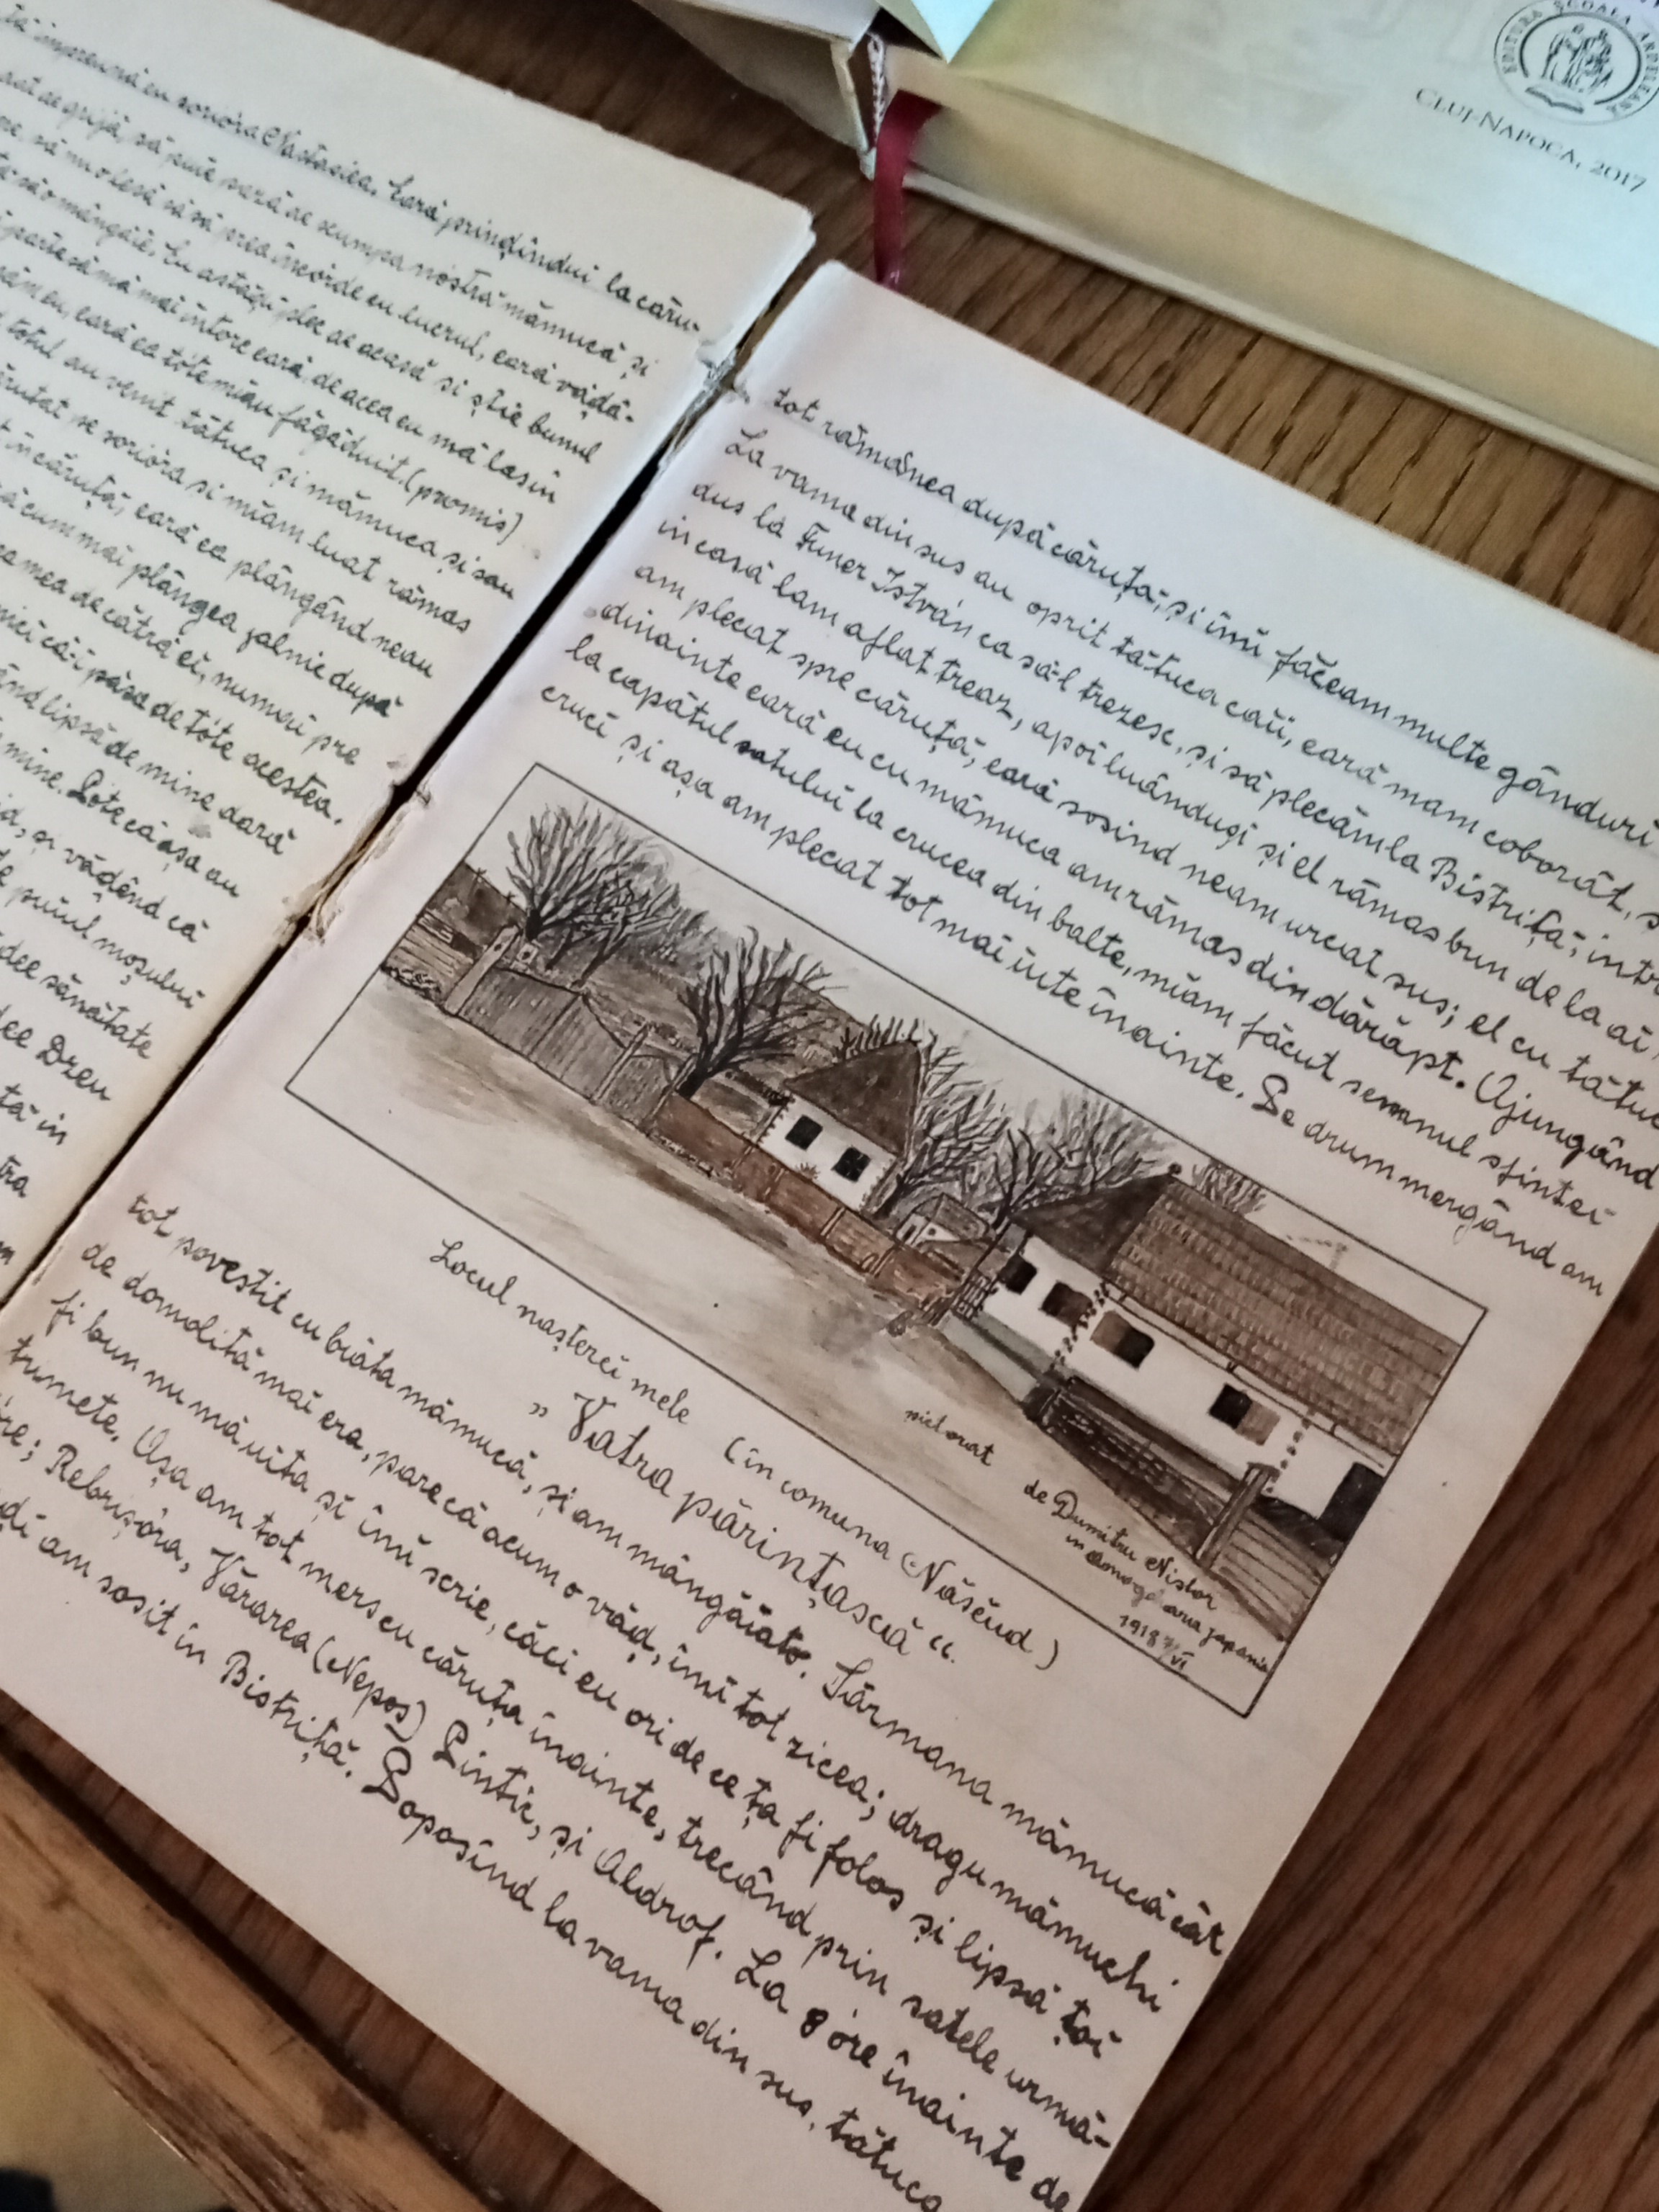 tă împreună cu soriora Nastasiea. Eară prindîndui la căru-
de grijă, să puie sază de scumpa nóstră mămucă, și
ne, să nu o lesă să să prea incórde cu lucrul, eară văḑâ-
să o mângâie. Eu astăḑi plec de acasă si știe bunul
parte să mă mai intorc eară, de acea eu mă las in
eu, eară ea tóte miau făgăduit. (promis)
totul au venit tătuca și mămuca și sau
sărutat pe sorióra si miam luat rămas
in căruță, eară ea plângând neau
cum mai plângea jalnic după
mea de cătră ei, numai pre
nici că-i păsa de tóte acestea.
ând lipsă de mine dară
mine. Póte că așa au
și văḑênd că
puiul moșului
dee sănătate
dee Dzeu
tă in
tra
tot rămânea după căruța; și îmi făceam multe gânduri
La vama din sus au oprit tătuca caii, eară mam coborât, s
dus la Funer István ca să-l trezesc, și să plecăm la Bistrița; intr
in casă lam aflat treaz, apoi luândușî și el rămas bun de la ai
am plecat spre căruță, eară sosind neam urcat sus; el cu tătuc
dinainte eară eu cu mămuca am rămas din dărăpt. Ajungând
la capătul satului la crucea din balte, miam făcut semnul sfintei
cruci și așa am plecat tot mai iute înainte. Pe drum mergând am
pictorat
de Dumitru Nistor
in Aonogahara Japania
1918 7/VI
Locul nașterei mele (în comuna Năsĕud)
„ Vatra părințască “.
tot povestit cu biata mămucă, și am mângăiato. Sărmana mămucă cât
de domolită mai era, pare că acum o văd, îmi tot zicea; dragu mămuchi
fi bun nu mă uita și îmi scrie, căci eu ori de ce ța fi folos și lipsă țoi
trumete. Așa am tot mers cu căruța înainte, trecând prin satele urmă-
re; Rebrișóra, Vărarea (Nepos) Pintic, și Aldrof. La 8 óre înainte de
ḑi am sosit in Bistriță. Poposind la vama din sus, tătuca
EDITURA ȘCOALA ARDELEANĂ
CLUJ-NAPOCA, 2017